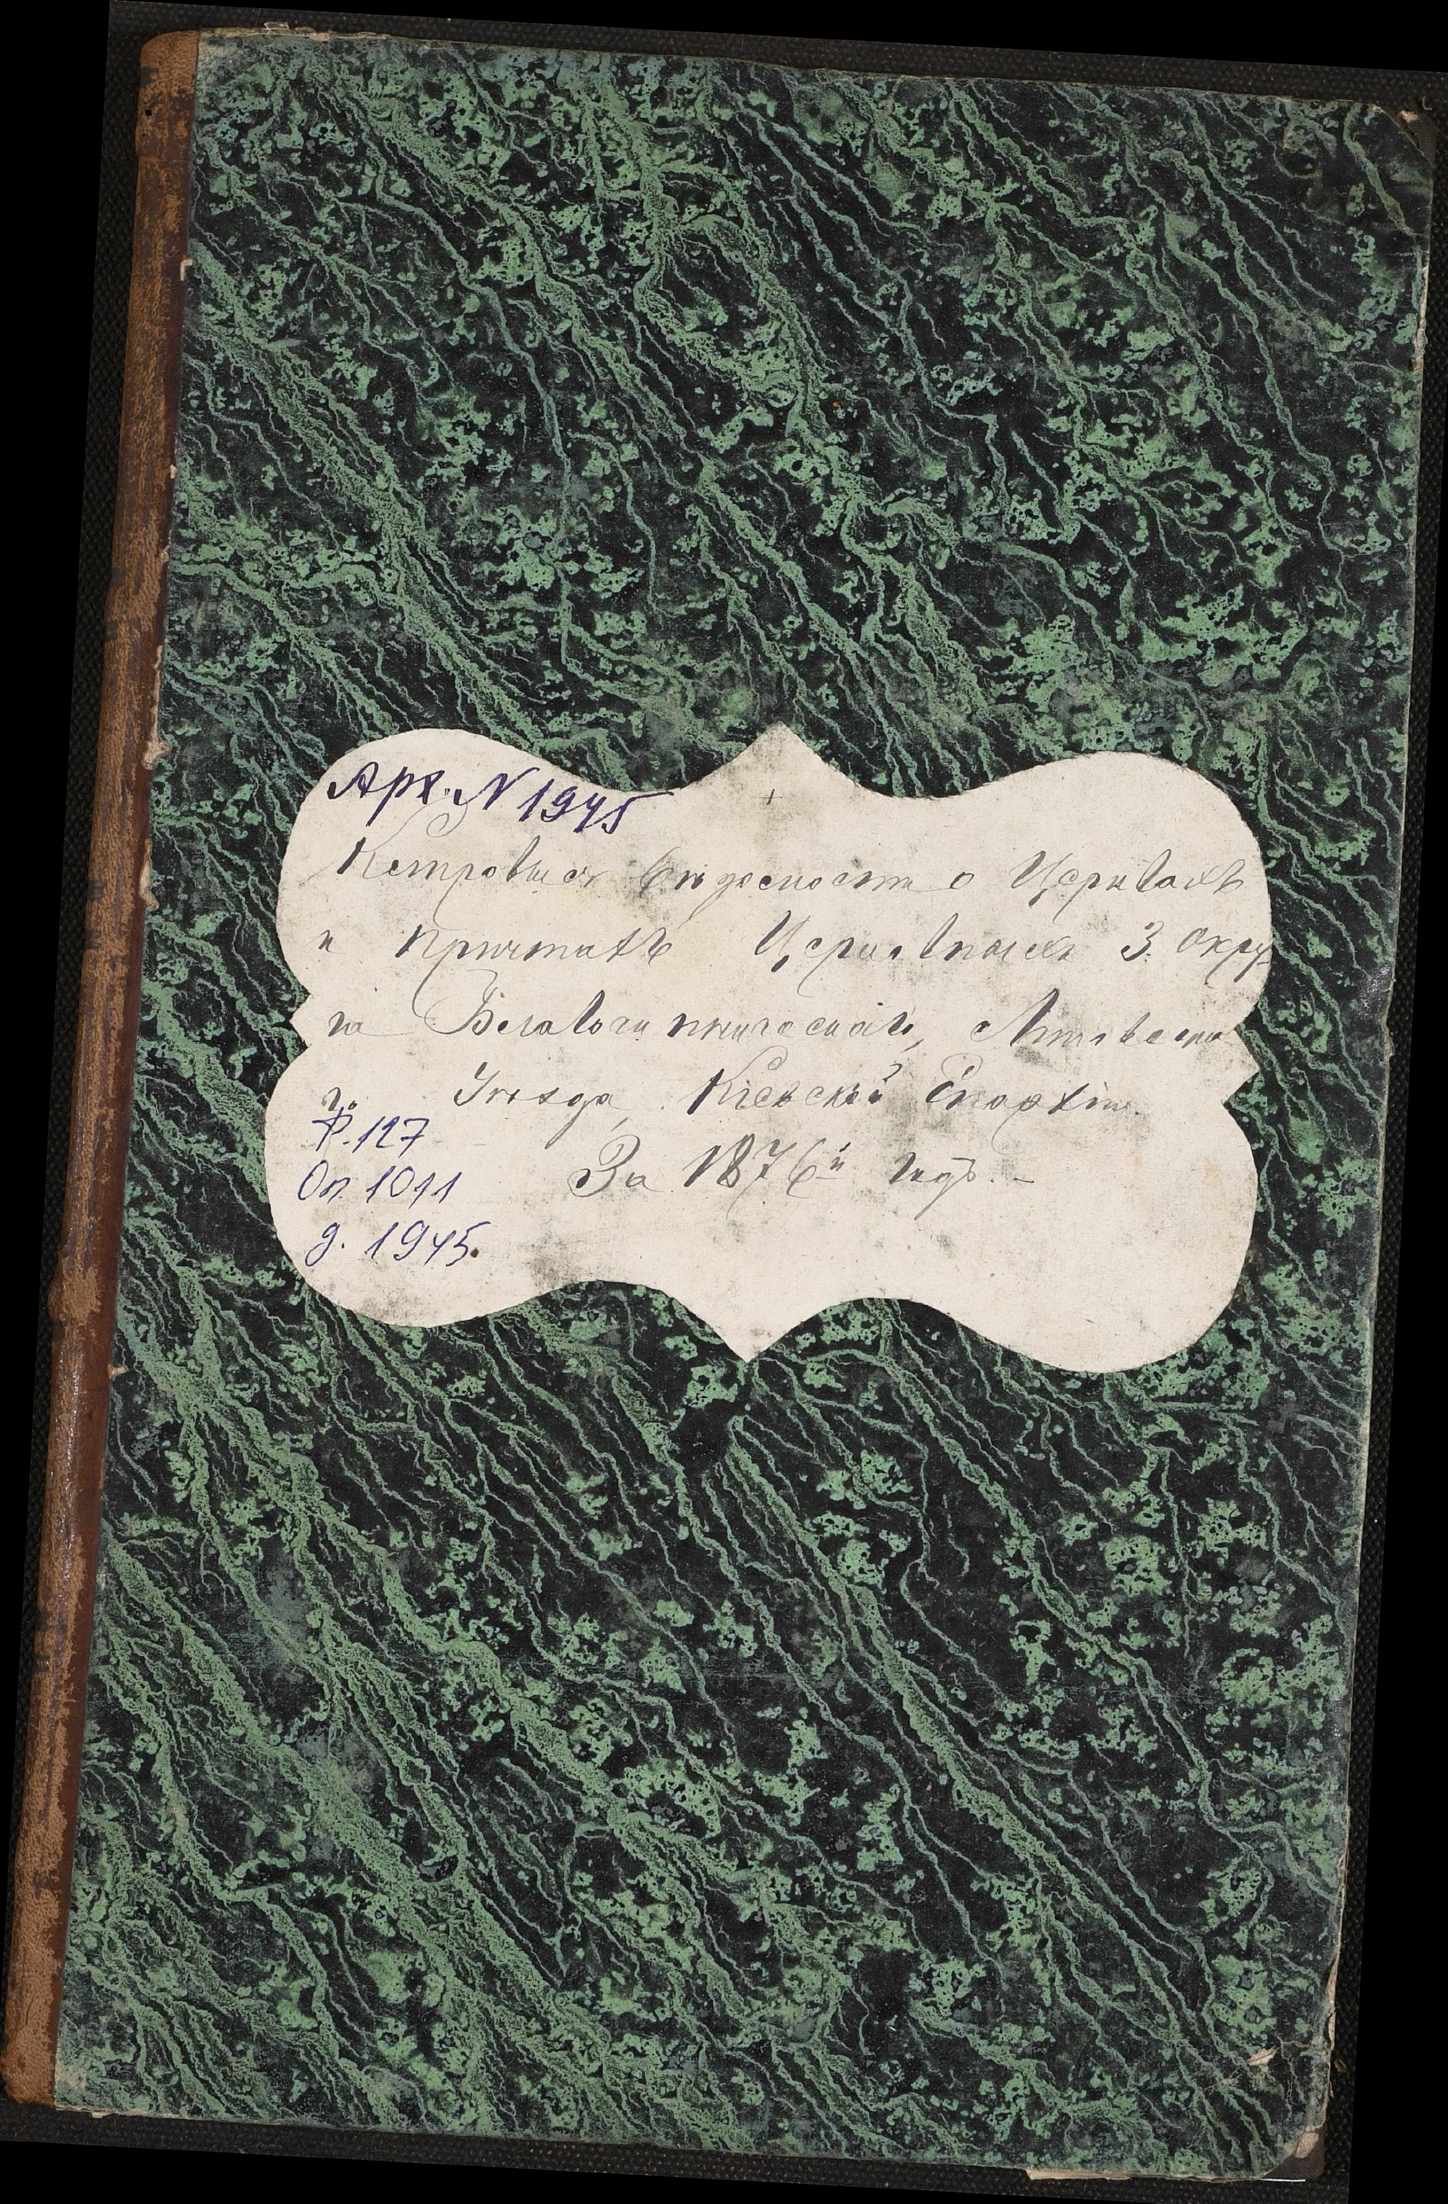 Арх. N 1945
Клировыя вѣдомости о Церквахъ
и причтахъ Церковныхъ 3. Окру-
га Благочинническаго, Липовецка-
го Уѣзда, Кіевской Епархіи.
Ф. 127
За 1876й годъ. -
Оп. 1011
д. 1945.